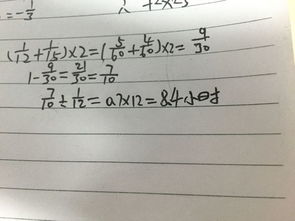 = -1/3
(1/12+1/15)×2=(5/60+4/60)×2=9/30
1-9/30=21/30=7/10
7/10÷1/12=0.7×12=8.4小时